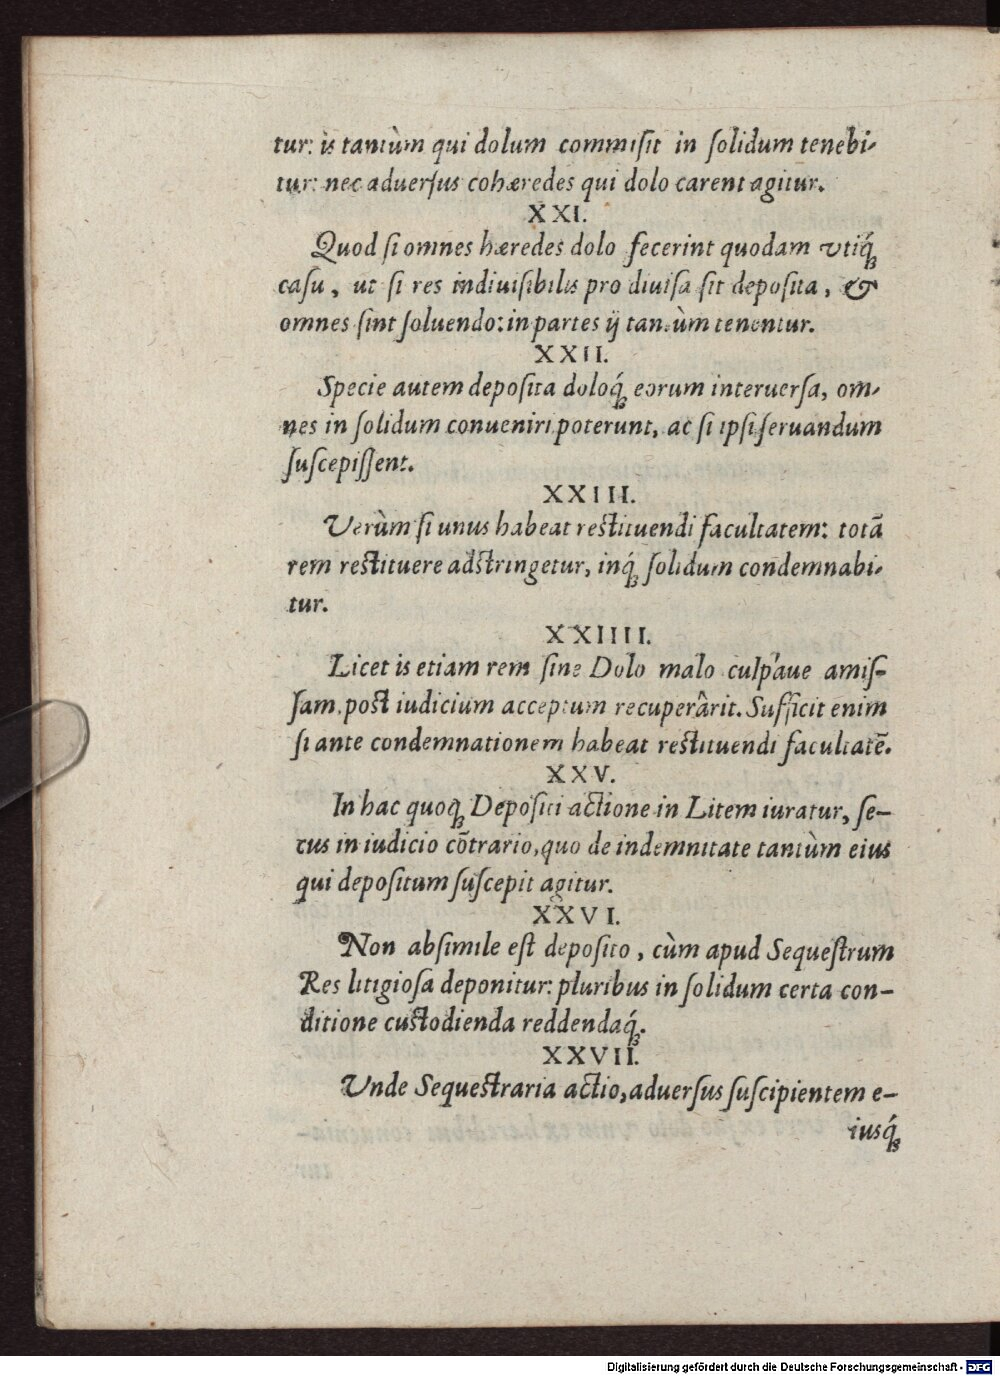 tur: is tantùm qui dolum commiſit in ſolidum tenebi-
tur: nec aduerſus cohæredes qui dolo carent agitur.
XXI.
Quod ſi omnes hæredes dolo fecerint quodam vtiq́ꝫ
caſu, ut ſi res indiuiſibilis pro diuiſa ſit depoſita, &
omnes ſint ſoluendo: in partes ij tantùm tenentur.
XXII.
Specie autem depoſita doloq́ꝫ eorum interuerſa, om-
nes in ſolidum conueniri poterunt, ac ſi ipſi ſeruandum
ſuſcepiſſent.
XXIII.
Verùm ſi unus habeat reſtituendi facultatem: totā
rem reſtituere adſtringetur, inq́ꝫ ſolidum condemnabi-
tur.
XXIIII.
Licet is etiam rem ſine Dolo malo culp'aue amiſ-
ſam, poſt iudicium acceptum recuperârit. Sufficit enim
ſi ante condemnationem habeat reſtituendi facultatē.
XXV.
In hac quoq́ꝫ Depoſiti actione in Litem iuratur, ſe-
cus in iudicio cōtrario, quo de indemnitate tantùm eius
qui depoſitum ſuſcepit agitur.
XXVI.
Non abſimile eſt depoſito, cùm apud Sequeſtrum
Res litigioſa deponitur: pluribus in ſolidum certa con-
ditione cuſtodienda reddendaq́ꝫ.
XXVII.
Vnde Sequeſtraria actio, aduerſus ſuſcipientem e-
iusq́ꝫ
Digitalisierung gefördert durch die Deutsche Forschungsgemeinschaft - DFG